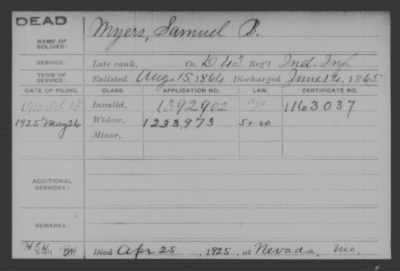 DEAD
Myers, Samuel
NAME OF SOLDIER:
SERVICE: Late rank, Co. Reg't Ind. Inf.
TERM OF SERVICE: Enlisted Aug. 15, 1864 Discharged June 1865
DATE OF FILING. CLASS. APPLICATION NO. LAW. CERTIFICATE NO.
Invalid, 1392902 1163037
1925 May 26 Widow, 1233,973
Minor,
ADDITIONAL SERVICES:
REMARKS:
Died Apr 25, 1925, at Nevada, Mo.